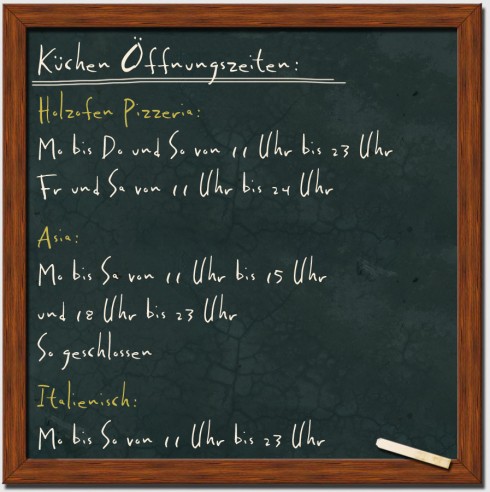 Küchen Öffnungszeiten:
Holzofen Pizzeria:
Mo bis Do und So von 11 Uhr bis 23 Uhr
Fr und Sa von 11 Uhr bis 24 Uhr
Asia:
Mo bis Sa von 11 Uhr bis 15 Uhr
und 18 Uhr bis 23 Uhr
So geschlossen
Italienisch:
Mo bis So von 11 Uhr bis 23 Uhr